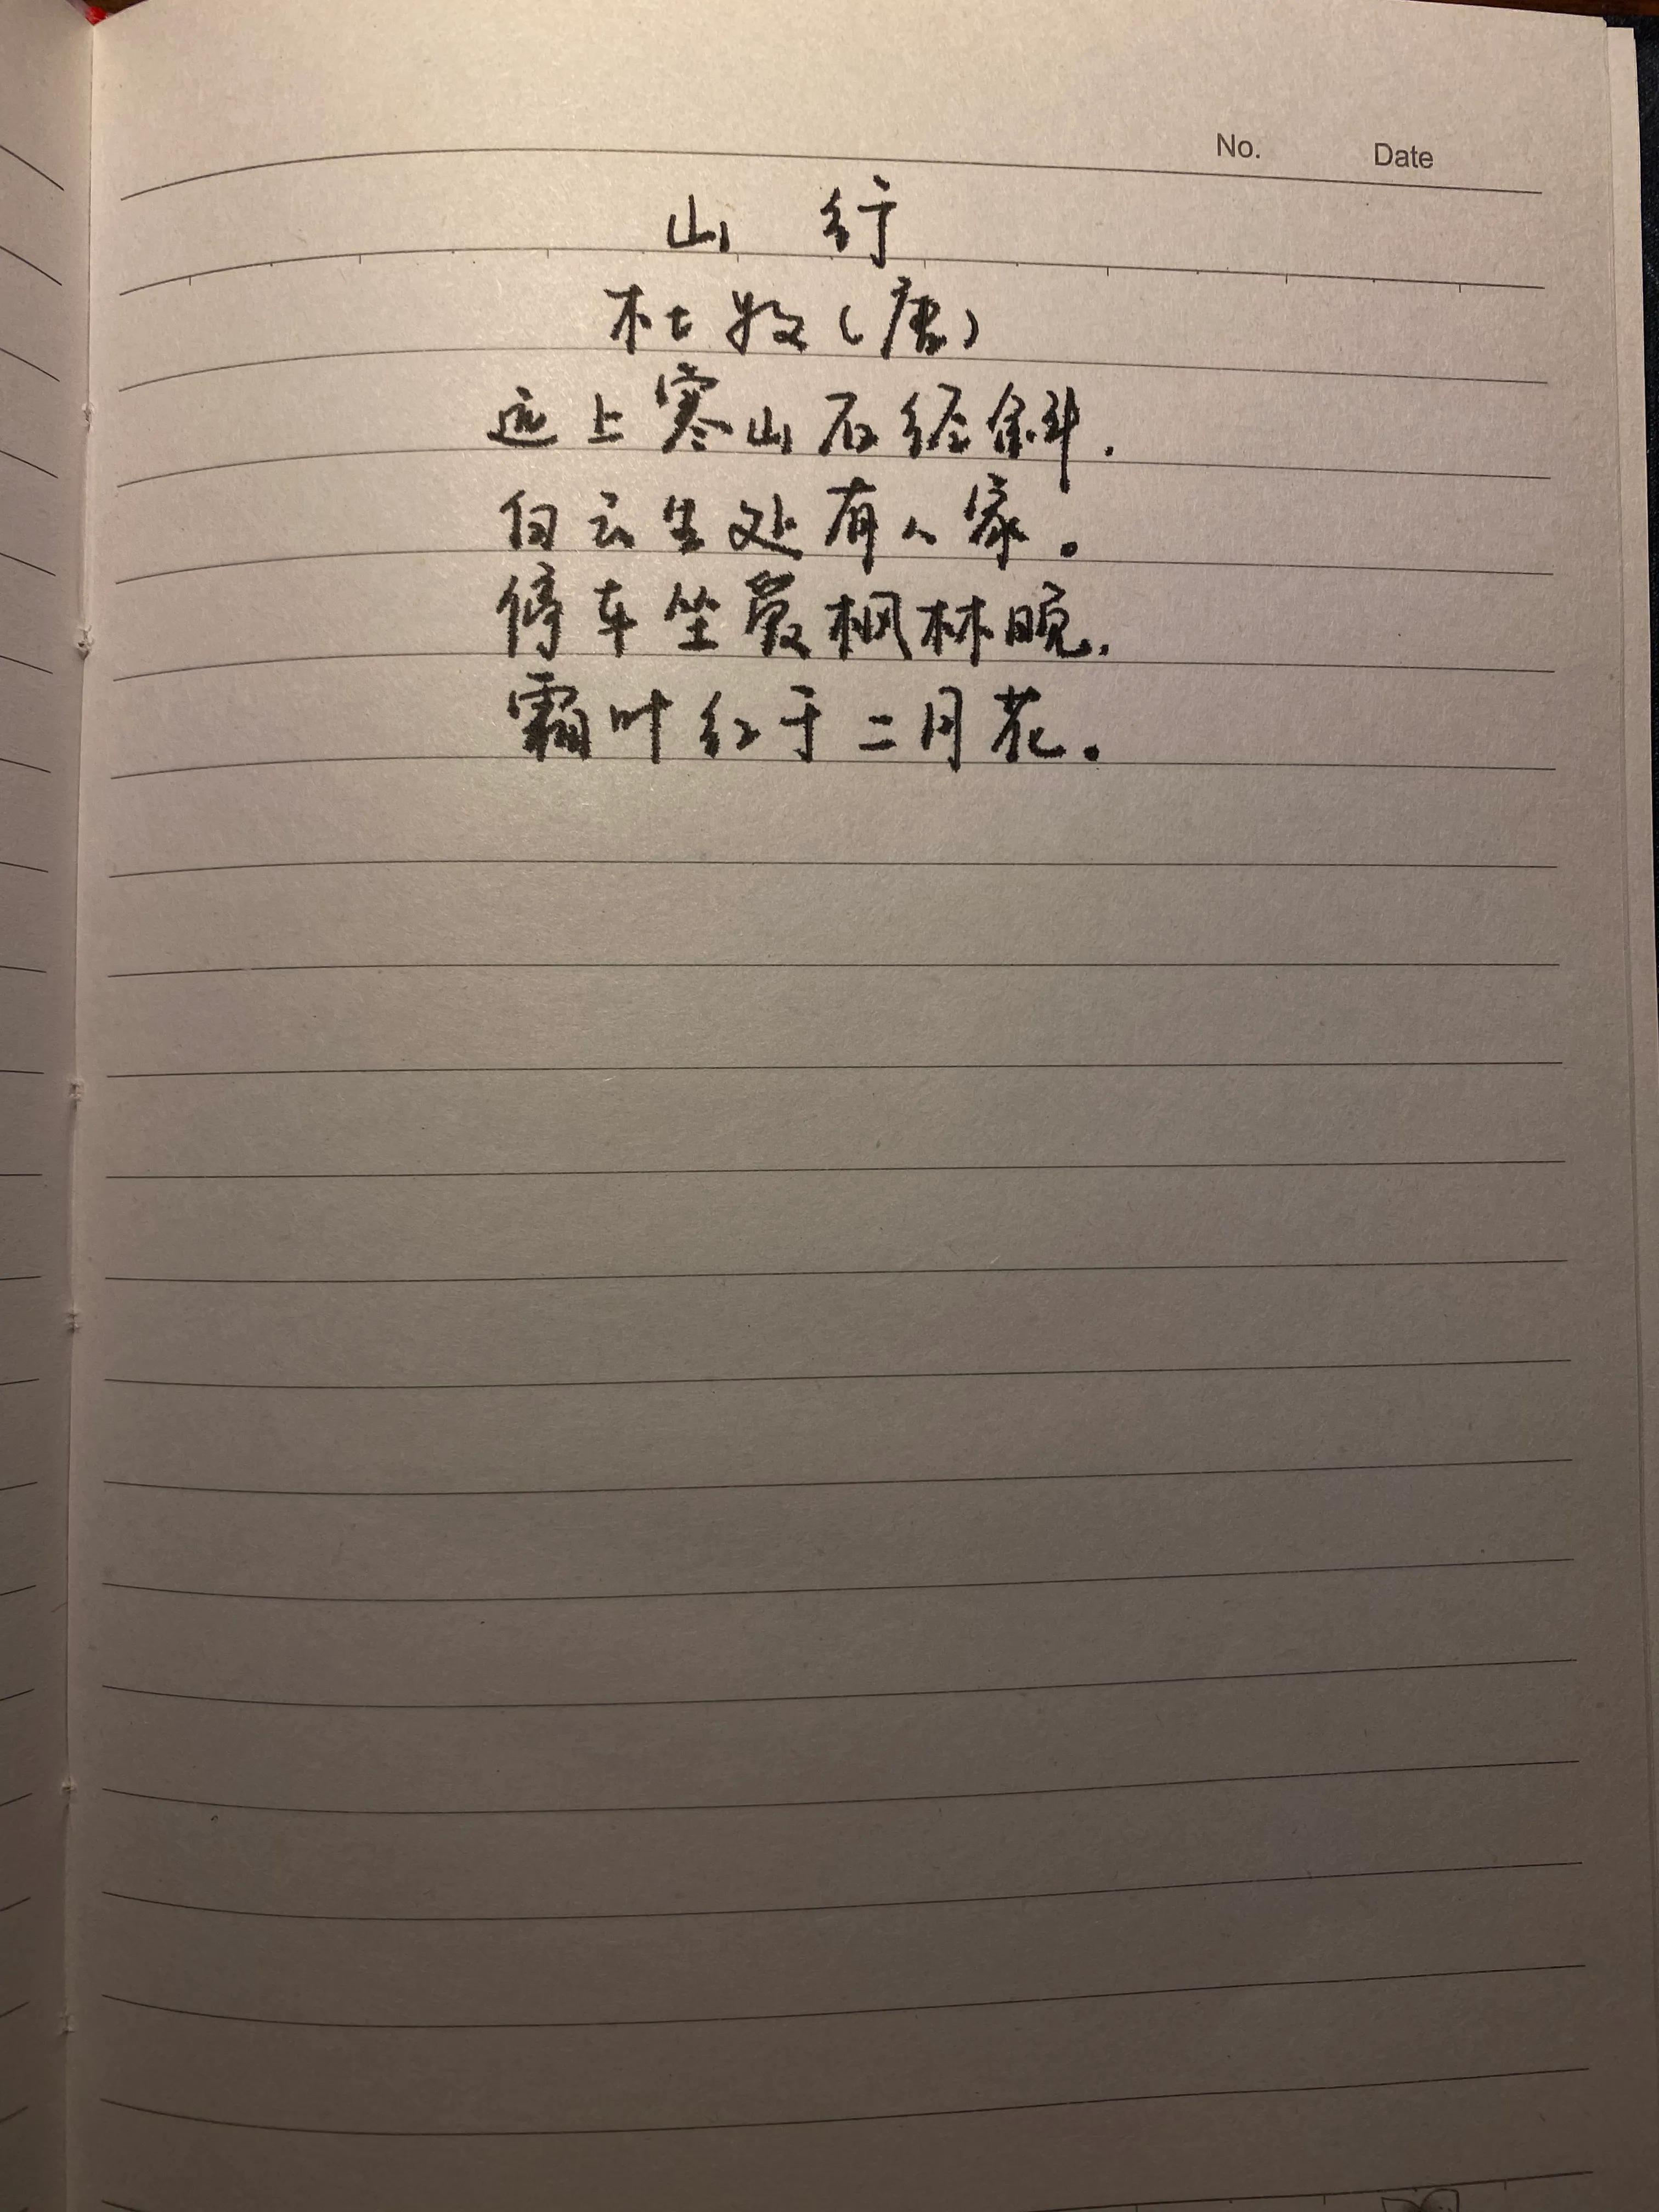 No. Date
山 行
杜牧(唐)
远上寒山石经斜.
白云生处有人家.
停车坐爱枫林晚.
霜叶红于二月花.